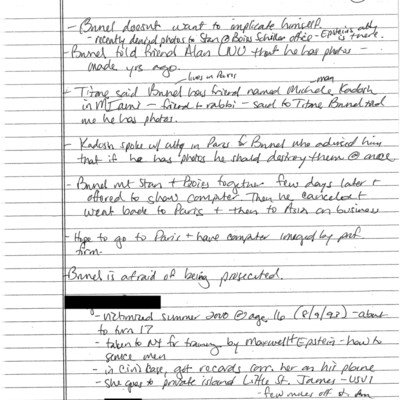 - Brunel doesn't want to implicate himself.
- recently denied photos to Stan @ Boies Schiller office - Epstein atty is there.
- Brunel told friend Alan LNU that he has photos
made yrs ago.
lives in Paris
man
- Titane said Brunel has friend named Michele Kadosh
in Miami - friend & rabbi - said to Titane Brunel told
me he has photos.
- Kadosh spoke w/ atty in Paris for Brunel who advised him
that if he has photos he should destroy them @ once
- Brunel mt Stan + Boies together few days later +
offered to show computer. Then he canceled +
went back to Paris + then to Asia on business
- Hope to go to Paris + have computer imaged by prof
firm.
Brunel is afraid of being prosecuted.
- victimized summer 2000 @ age 16 - about
to turn 17
- taken to NY for training by Maxwell + Epstein - how to
service men
- in Civil case, got records corr. her on his plane
- she goes to private island Little St. James - USVI
- few miles off St.